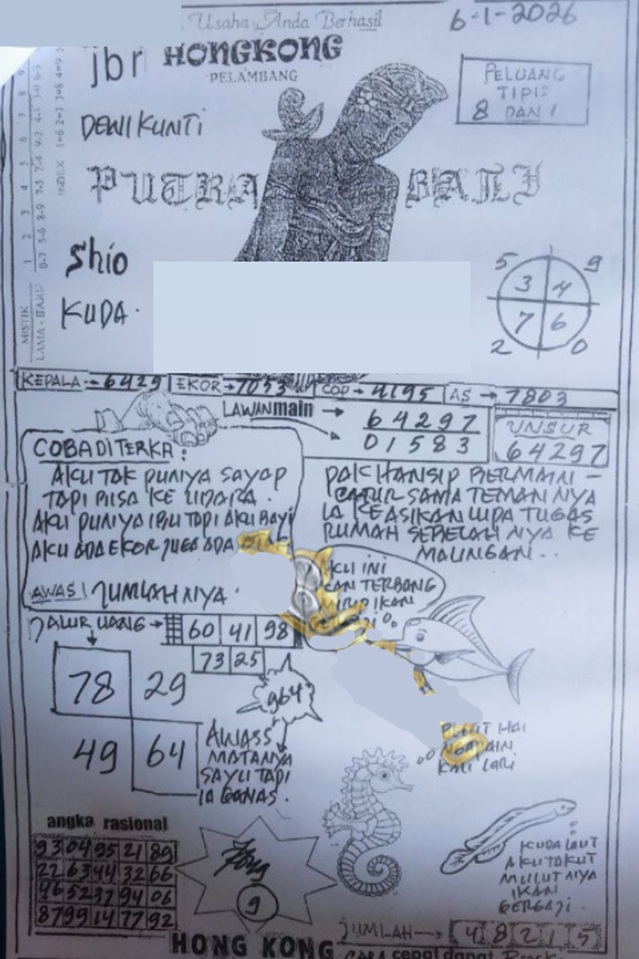 Usaha Anda Berhasil
6-1-2026
jbr HONGKONG
PELAMBANG
PELUANG
TIPIS
8 DAN 1
DEWI KUNTI
PUTRA BALI
Shio
KUDA.
5 9
3 4
7 6
2 0
MISTIK
LAMA - BARU
INDEX
KEPALA → 6429 EKOR → 7053 COP → 4195 AS → 7803
LAWAN main → 64297
01583
UNSUR
64297
COBA DITERKA:
AKU TAK PUNYA SAYAP
TAPI BISA KE UDARA.
AKU PUNYA IBU TAPI AKU BAYI
AKU ADA EKOR JUGA ADA
AWAS! JUMLAH NYA.
PAK HANSIP BERMAIN -
CATUR SAMA TEMAN NYA
IA KEASIKAN LUPA TUGAS
RUMAH SEBELAH NYA KE
MALINGAN..
AKU INI
TERBANG
IKAN
JALUR UANG → 60 41 98
73 25
78 29
49 64
964
AWASS
MATANYA
SAYU TAPI
IA GANAS.
BELUT HAI
NGAPAIN
KAU LARI
angka rasional
93 04 95 21 89
22 63 44 32 66
46 52 37 94 06
87 99 14 77 92
9
KUDA LAUT
AKU TAKUT
MULUT NYA
IKAN
GERGAJI.
JUMLAH → 4 8 2 1 5
HONG KONG
cepat dapat